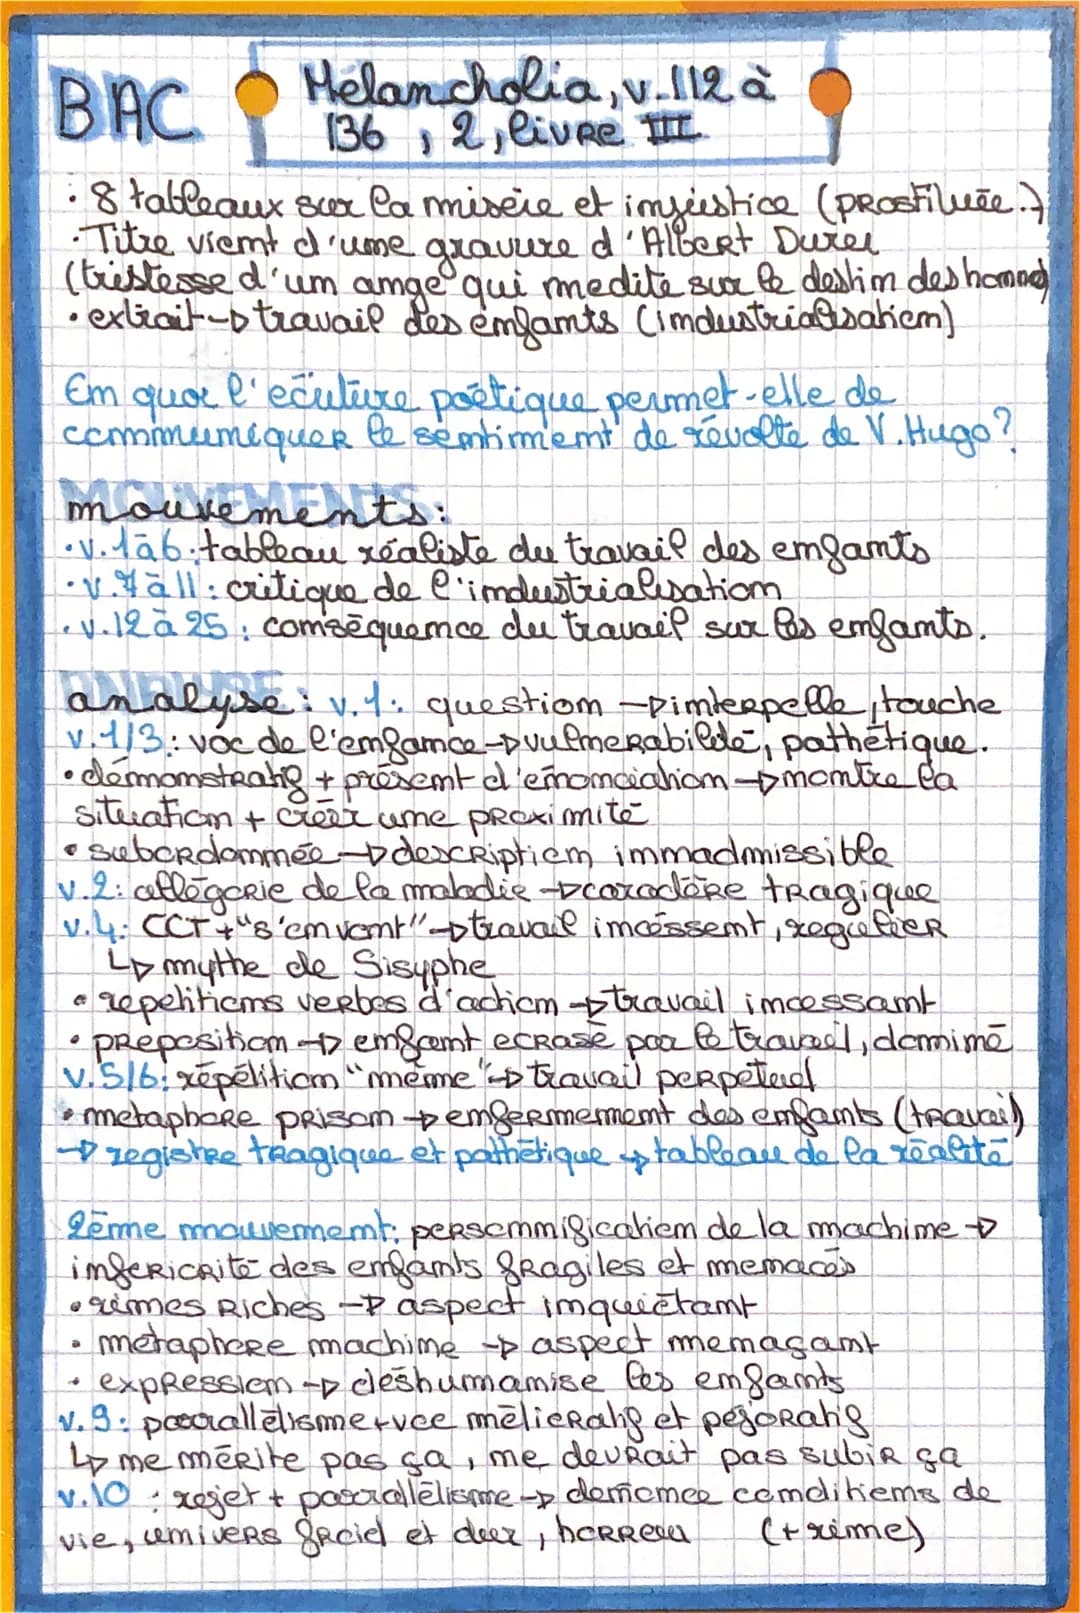 BAC
Mélancholia, v.112 à
136, 2, livre III
• 8 tableaux sur la misère et injustice (prostituée.)
• Titre vient d'une gravure d'Albert Durer
(tristesse d'un ange qui medite sur le destin des hommes)
• extrait → travail des enfants (industrialisation)
En quoi l'ecriture poétique permet-elle de
communiquer le sentiment de révolte de V. Hugo?
MOUVEMENTS:
mouvements:
• v.1 à 6: tableau réaliste du travail des enfants
• v.7 à 11: critique de l'industrialisation
• v.12 à 25: conséquence du travail sur les enfants.
ANALYSE:
analyse: v.1: question → interpelle, touche
v.1/3: voc de l'enfance → vulnerabilité, pathétique.
• démonstratif + présent d'énonciation → montre la
situation + créer une proximité
• subordonnée → description inadmissible
v.2: allégorie de la maladie → caractère tragique
v.4: CCT + "s'en vont" → travail incessent, regulier
↳ mythe de Sisyphe
• repetitions verbes d'action → travail incessant
• preposition → enfant ecrasé par le travail, dominé
v.5/6: répétition "même" → travail perpetuel
• metaphore prison → enfermement des enfants (travail)
→ registre tragique et pathétique → tableau de la réalité
2ème mouvement: personnification de la machine →
inferiorité des enfants fragiles et menacés
• rimes riches → aspect inquiétant
• métaphore machine → aspect menaçant
• expression → déshumanise les enfants
v.9: parallélisme + vce mélioratif et péjoratif
↳ ne mérite pas ça, ne devrait pas subir ça
v.10: rejet + parallélisme → denonce conditions de
vie, univers froid et dur, horreur (+ rime)